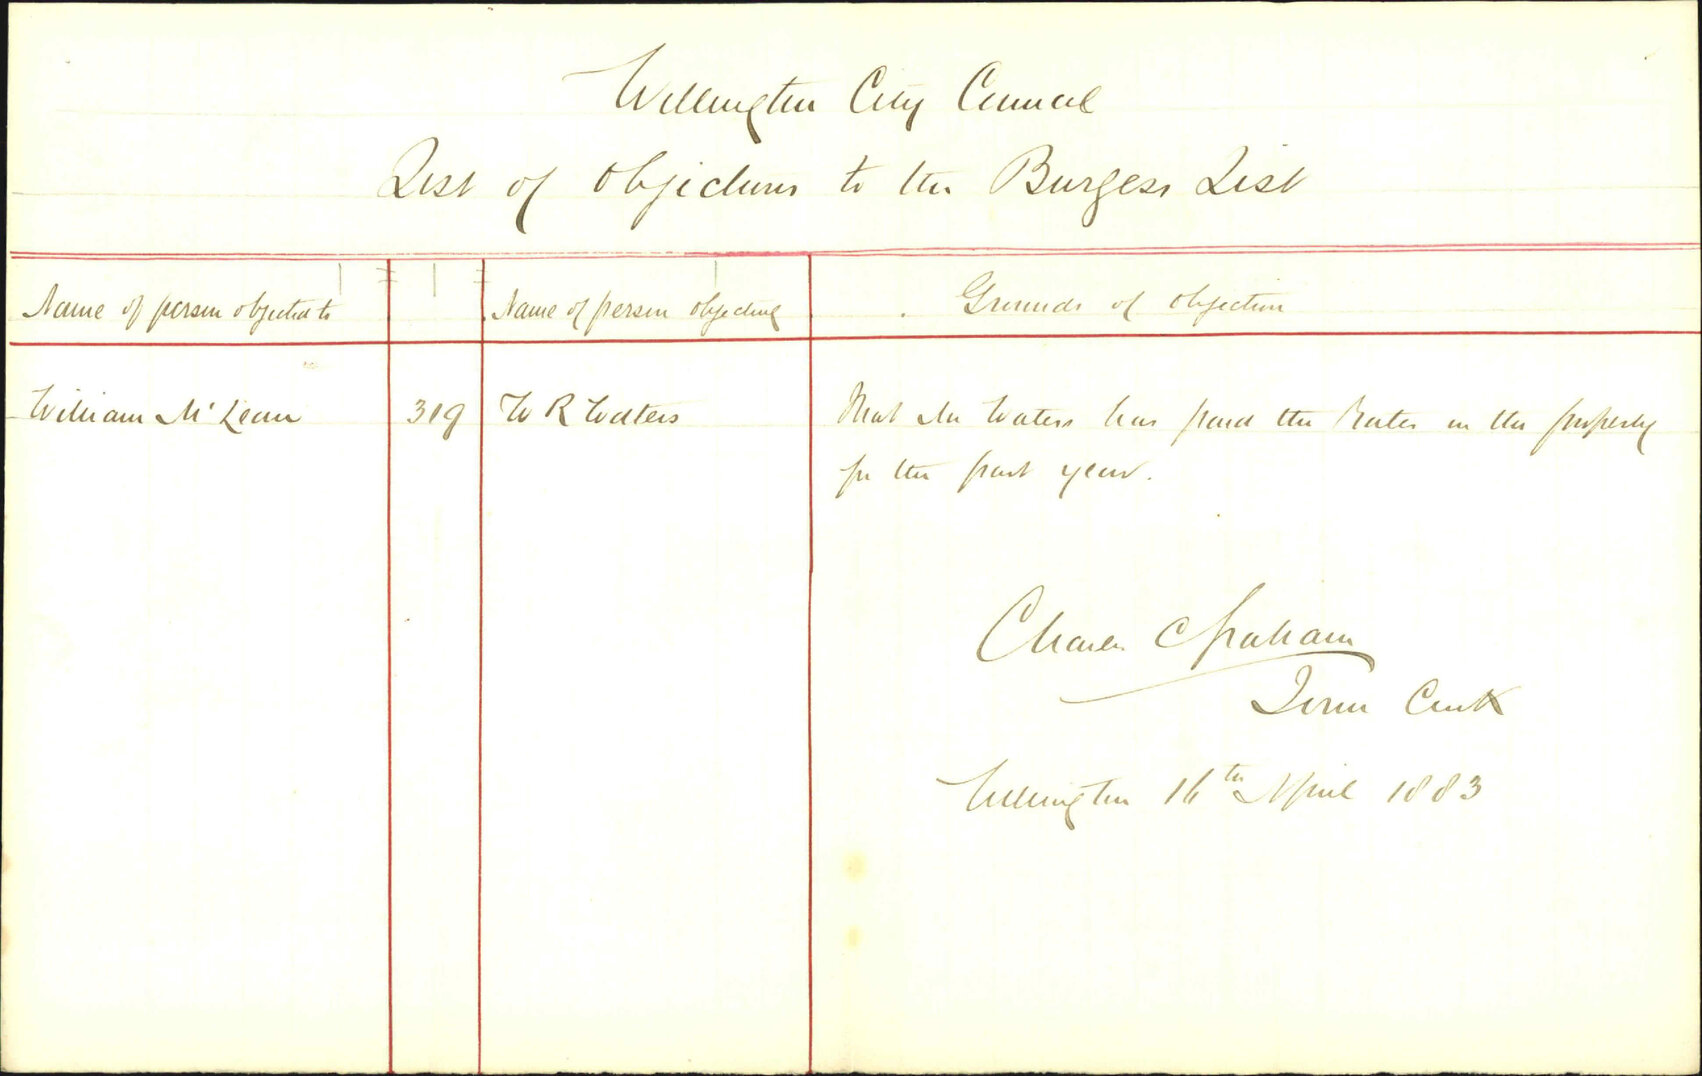 Wellington City Council
List of objections to the Burgess List
Name of person objected to Name of person objecting Grounds of objection
William McLean 319 W R Waters That Mr Waters has paid the Rates on the property
for the past year.
Charles Graham
Town Clerk
Wellington 16th April 1883